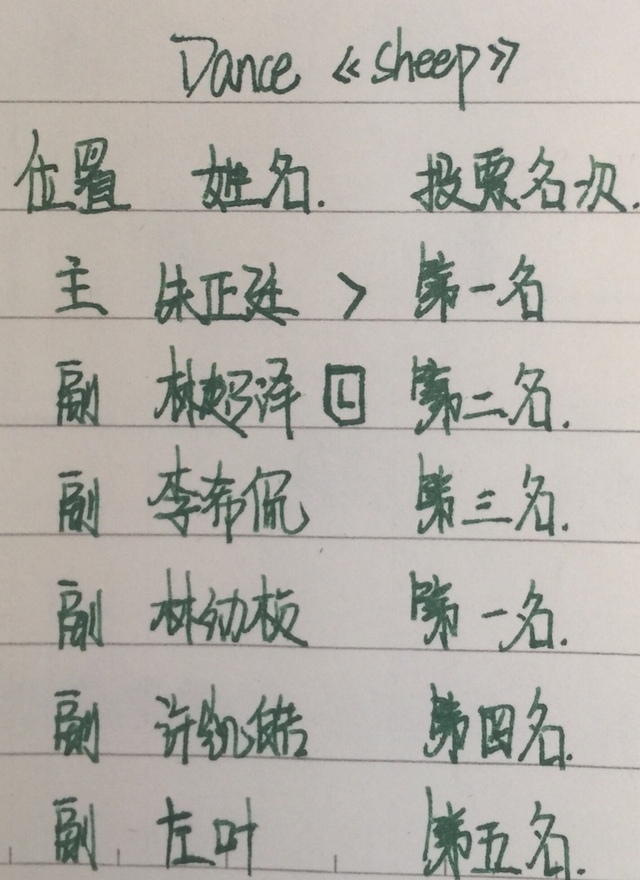 Dance 《sheep》
位置 姓名. 投票名次.
主 朱正廷 > 第一名
副 林超泽 L 第二名.
副 李希侃 第三名.
副 林幼桢 第一名.
副 许凯皓 第四名.
副 左叶 第五名.